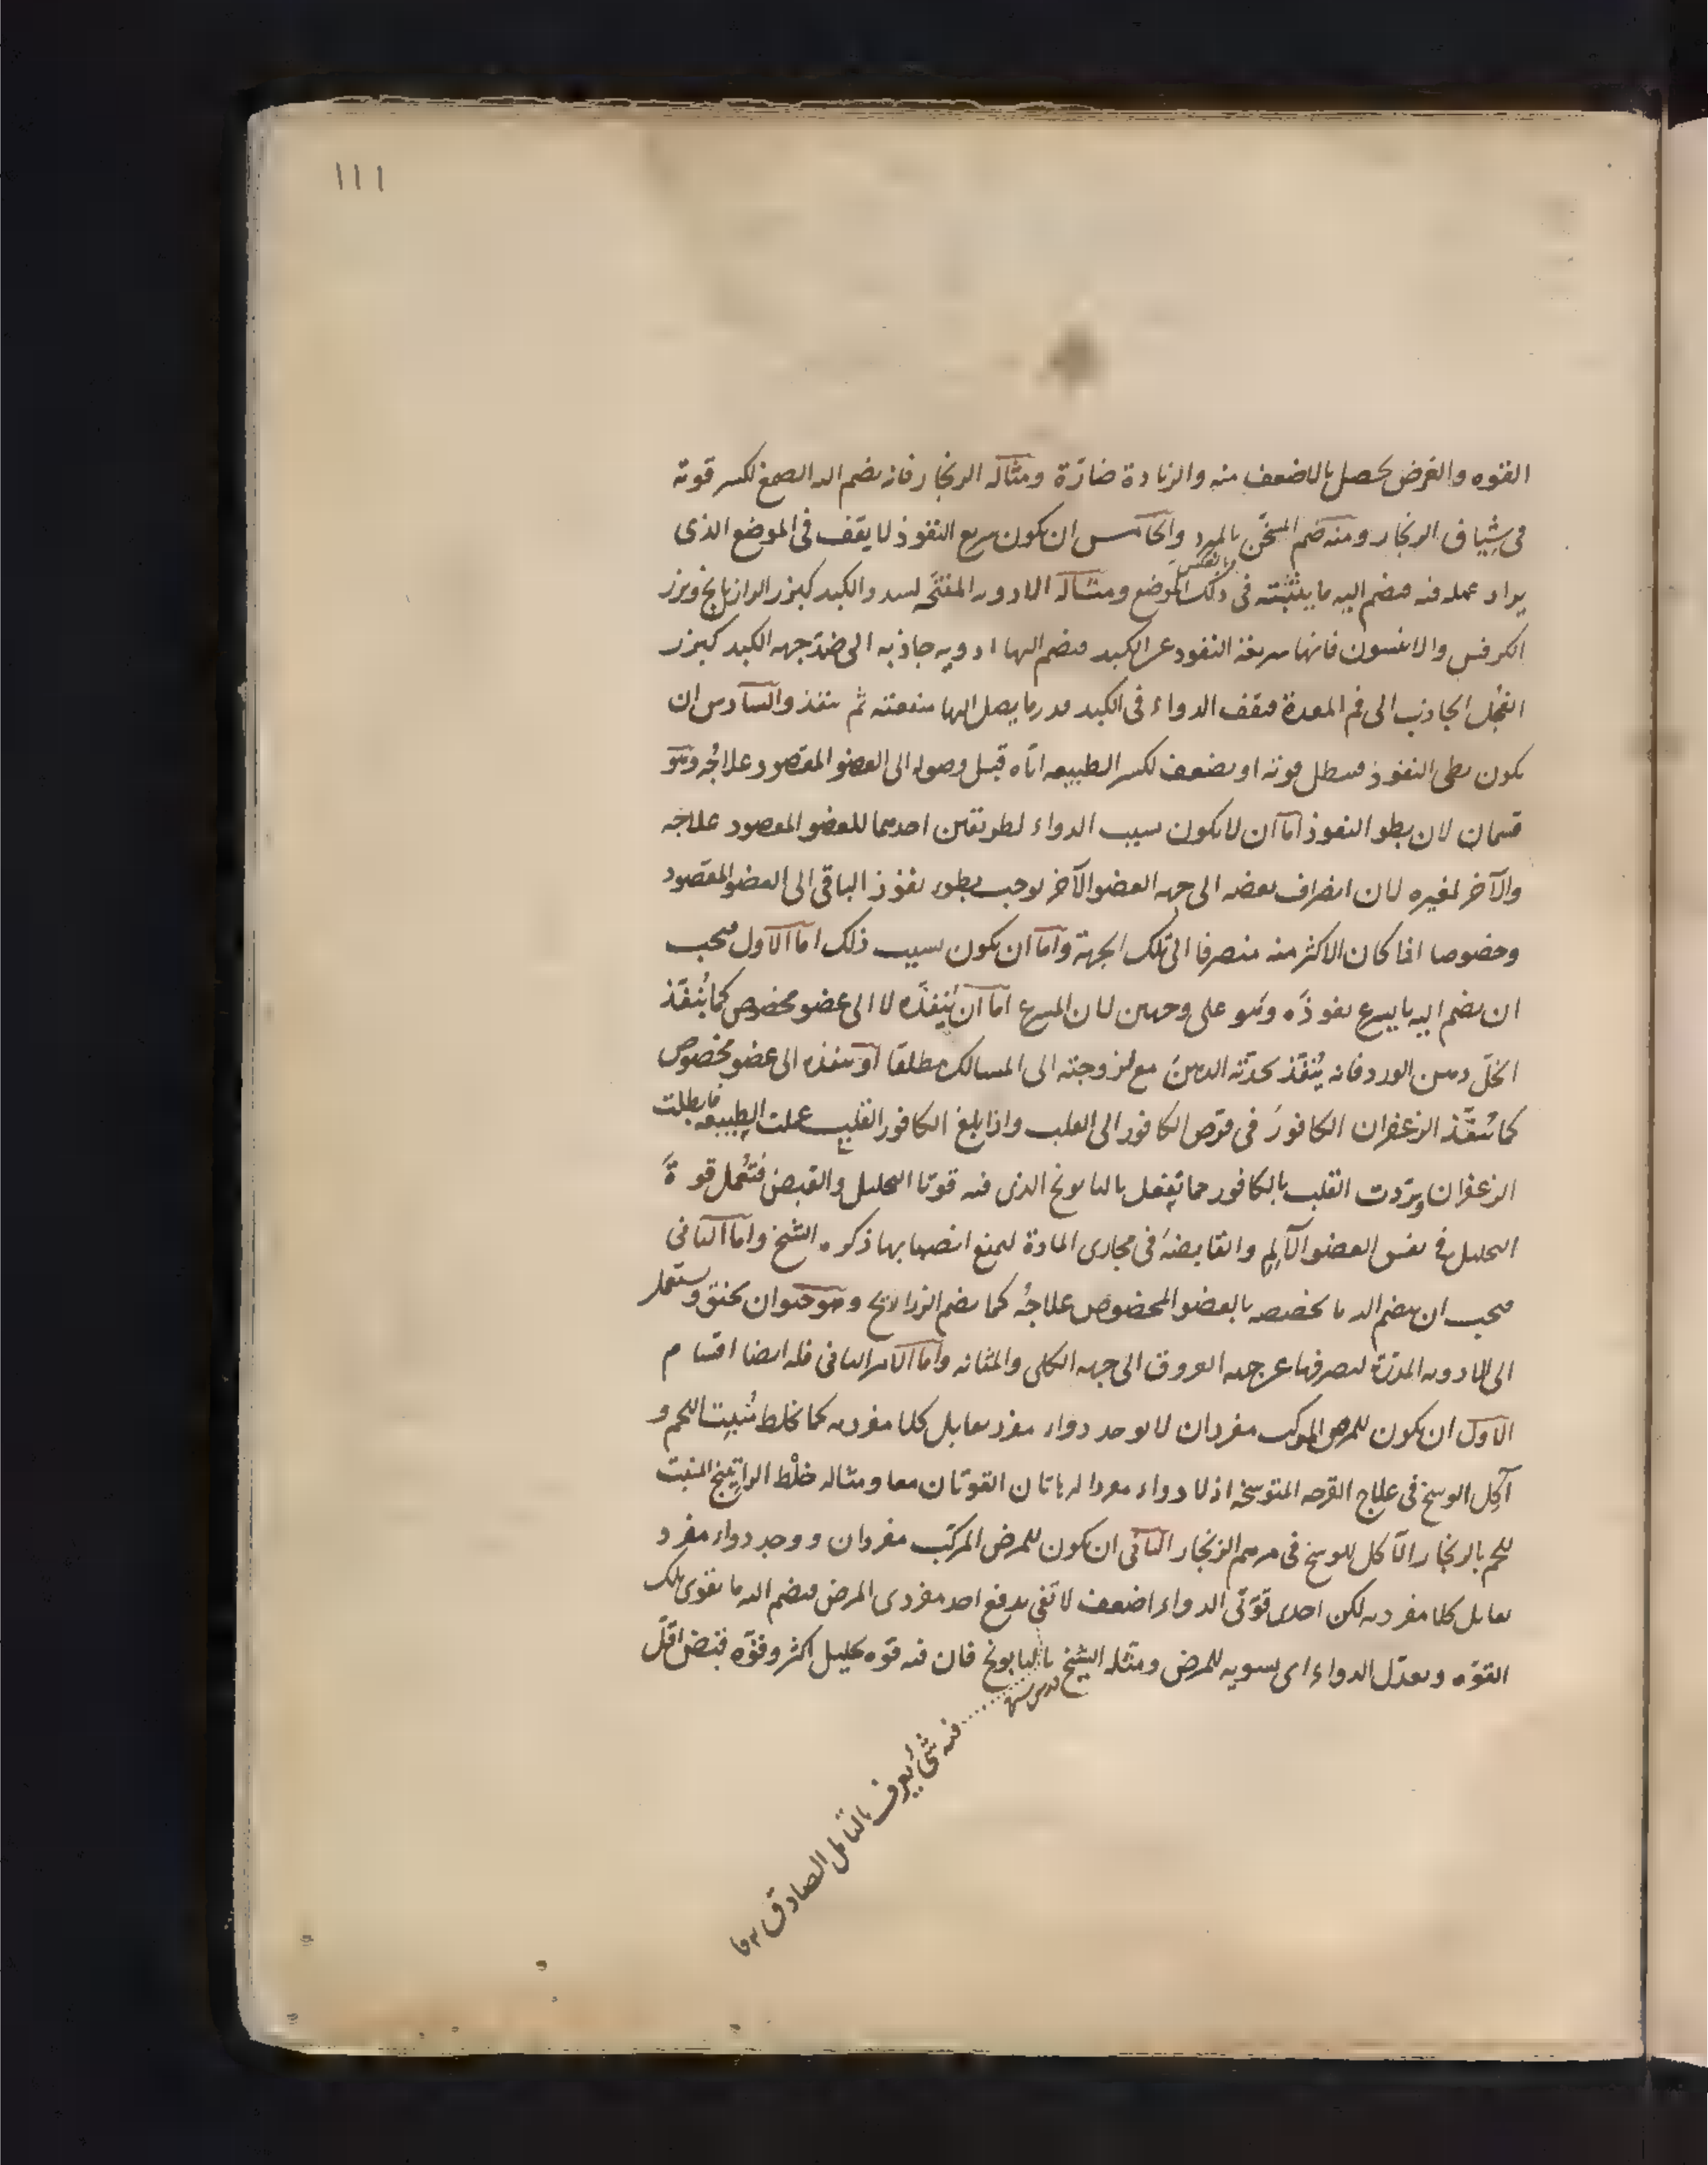 ١١١
القوه والغرض يحصل بالاضعف منه والزيادة ضارّة ومثاله الزنجار فانه يضم اليه الصمغ لكسر قوته
فى شِياف الزنجار ومنه ضم المسخّن بالمبرد والخامس ان يكون سريع النفوذ لا يقف فى الموضع الذى
يراد عمله فيه فيضم اليه ما يثبّته فى ذلك الموضع ومثاله الادويه المفتّحه لسدد الكبد كبزر الرازيانج وبزر
الكرفس والانيسون فانها سريعة النفوذ عن الكبد فيضم اليها ادويه جاذبه الى ضدّ جهه الكبد كبزر
الفجل الجاذب الى فم المعدة فيقف الدواء فى الكبد قدر ما يصل اليها منفعته ثم ينفذ والسادس ان
يكون بطى النفوذ فيبطل قوته او يضعف لكسر الطبيعه ايّاه قبل وصوله الى العضو المقصود علاجُه وهو
قسمان لان بطو النفوذ اما ان لا يكون بسبب الدواء لطريقين احدهما للعضو المقصود علاجه
والآخر لغيره لان انصراف بعضه الى جهه العضو الآخر يوجب بطوء نفوذ الباقى الى العضو المقصود
وخصوصا اذا كان الاكثر منه منصرفا الى تلك الجهة واما ان يكون بسبب ذلك اما الاول فيجب
ان يضم اليه ما يسرع نفوذَه وهو على وجهين لان المسرع اما ان يُنفِذَه لا الى عضو مخصوص كما يُنفّذ
الخلّ دهن الورد فانه يُنفّذ بحدّته الدهنَ مع لزوجته الى المسالك مطلقا او ينفذه الى عضو مخصوص
كما يُنفّذ الزعفران الكافورَ فى قرص الكافور الى القلب واذا بلغ الكافور القلب عملت الطبيعه فابطلت
الزعفران وبرّدت القلب بالكافور كما يفعل بالبابونج الذى فيه قوتا التحليل والقبض فتُعمل قوةَ
التحليل فى نفس العضو الآلِم والقابضةَ فى مجارى المادة ليمنع انصبابها ذكره الشيخ واما الثانى
فيجب ان يضم اليه ما يخصصه بالعضو المخصوص علاجُه كما يضم الذراريح وهو حيوان يحنق ويستعمل
الى الادويه المدرّة ليصرفها عن جهه العروق الى جهه الكلى والمثانه واما الامر الثانى فله ايضا اقسام
الاول ان يكون للمرض المركب مفردان لا يوجد دواء مفرد يقابل كلا مفرديه كما نخلط مُنبِت اللحم و
آكِل الوسخ فى علاج القرحه المتوسخه اذ لا دواء مفردا له هاتان القوتان معا ومثاله خلْط الراتِينج المنبت
للحم بالزنجار الآكل للوسخ فى مرهم الزنجار الثانى ان يكون للمرض المركّب مفردان ويوجد دواء مفرد
يقابل كلا مفرديه لكن احدى قوّتى الدواء اضعف لا تفى بدفع احد مفردى المرض فيضم اليه ما يقوى تلك
القوّه ويعدّل الدواء اى يسويه للمرض ومثله الشيخ بالبابونج فان فيه قوه تحليل اكثر وقوّه قبض اقلّ
فيه شئ يُعرف بالتامل الصادق